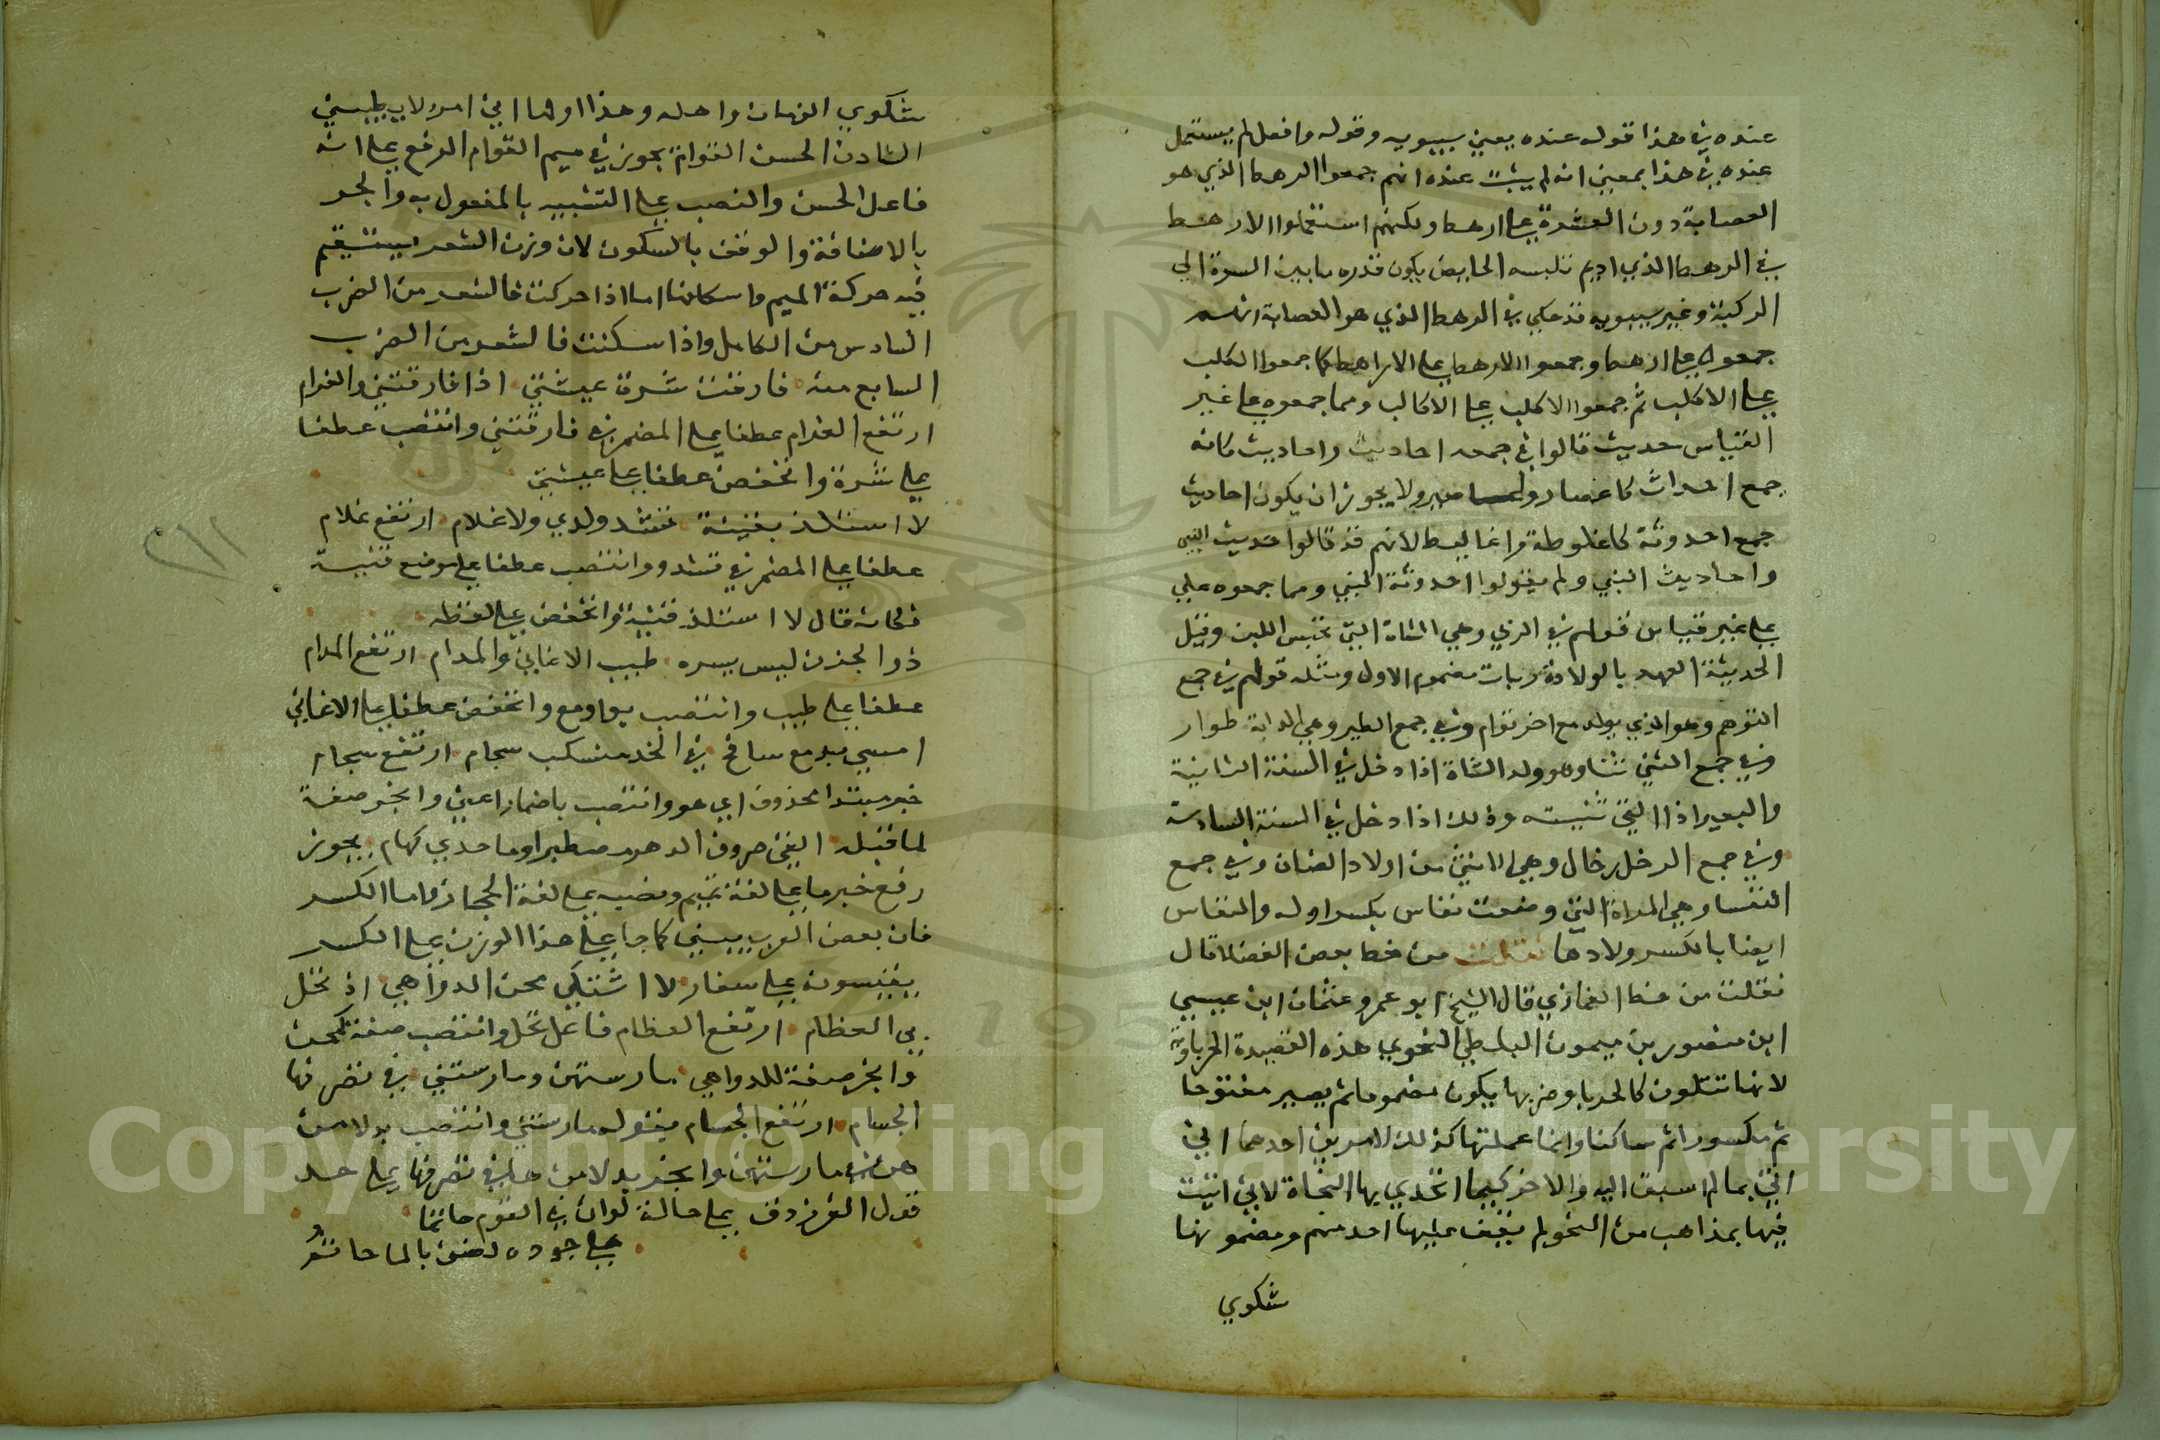 عنده في هذا قوله عنده يعني سيبويه وقوله وافعل لم يستعمل
عنده في هذا بمعني انه لم يثبت عنده انهم جمعوا الرهط الذي هو
العصابة دون العشرة علي ارهط ولكنهم استعملوا الارهط
في الرهط الذي اديم تلبسه الحايض يكون قدره ما بين السرة الي
الركبة وغير سيبويه قد حكي في الرهط الذي هو العصابة انهم
جمعوه علي ارهط وجمعوا الارهط علي الاراهط كما جمعوا الكلب
علي الاكلب ثم جمعوا الاكلب علي الاكالب ومما جمعوه علي غير
القياس حديث قالوا في جمعه احاديث واحاديث كانه
جمع احداث كاعصار ولا يجوز ان يكون احاديث
جمع احدوثة كاغلوطة واغاليط لانهم قد قالوا حديث النبي
واحاديث النبي ولم يقولوا احدوثة النبي ومما جمعوه علي
علي غير قياس قولهم في الربي وهي الشاة التي تحبس اللبن وقيل
الحديثة العهد بالولادة رباب مضموم الاول ومثله قولهم في جمع
التوءم وهو الذي يولد مع اخر تؤام وفي جمع الظير وهي الداية ظوار
وفي جمع الثني ثنا وهو ولد الشاة اذا دخل في السنة الثانية
والبعير اذا القي ثنيته وذلك اذا دخل في السنة السادسة
وفي جمع الرخل رخال وهي الانثي من اولاد الضان وفي جمع
النفسا وهي المراة التي وضعت نفاس بكسر اوله والنفاس
ايضا بالكسر ولادها نقلت من خط بعض الفضلا قال
نقلت من خط الغمازي قال الشيخ ابو عمرو عثمان ابن عيسي
ابن منصور بن ميمون البلطي النحوي هذه القصيدة الحرباوية
لانها تتلون كالحربا وضربها يكون مضموما ثم يصير مفتوحا
ثم مكسورا ثم ساكنا وانما عملتها كذلك لامرين احدهما اني
اتي بما لم اسبق اليه والاخر كيما اتحدي بها النحاة لاني اتيت
فيها بمذاهب من النحو لم يقف عليها احد منهم ومضمونها
شكوي
شكوي الزمان واهله وهذا اولها اني امرو لا يطبيني
الشادن الحسن القوام يجوز في ميم القوام الرفع علي انه
فاعل الحسن والنصب علي التشبيه بالمفعول به والجر
بالاضافة والوقف بالسكون لان وزن الشعر يستقيم
فيه حركة الميم واسكانها اما اذا حركت فالشعر من الضرب
السادس من الكامل واذا سكنت فالشعر من الضرب
السابع منه فارقت شرة عيشتي اذ فارقتني والغرام
ارتفع الغرام عطفا علي المضمر في فارقتني وانتصب عطفا
علي شرة وانخفض عطفا علي عيشتي
لا استلذ بقينة تشدو لدي ولا غلام ارتفع غلام
عطفا علي المضمر في تشدو وانتصب عطفا علي موضع قينة
فكانه قال لا استلذ قينة وانخفض علي لفظه
ذو الحزن ليس يسره طيب الاغاني والمدام ارتفع المدام
عطفا علي طيب وانتصب بواو مع وانخفض عطفا علي الاغاني
امسي بدمع سافح في الخد منسكب سجام ارتفع سجام
خبر مبتدا محذوف اي هو وانتصب باضمار اعني وانجر صفة
لما قبله القي صروف الدهر مصطبرا وما حدي كهام يجوز
رفع خبر ما علي لغة تميم ونصبه علي لغة الحجاز واما الكسر
فان بعض العرب يبني كما جا علي هذا الوزن علي الكسر
يقيسونه علي سفار لا اشتكي محن الدواهي اذ تحل
بي العظام ارتفع العظام فاعل تحل وانتصب صفة لمحن
وانجر صفة للدواهي مارستهن ومارستني في تصرفها
الجسام ارتفع الجسام بقوله مارستني وانتصب بدلا من
هن في مارستهن وانجر بدلا من ها في تصرفها علي حد
قول الفرزدق علي حالة لو ان في القوم حاتما
علي جوده لضن بالما حاتم